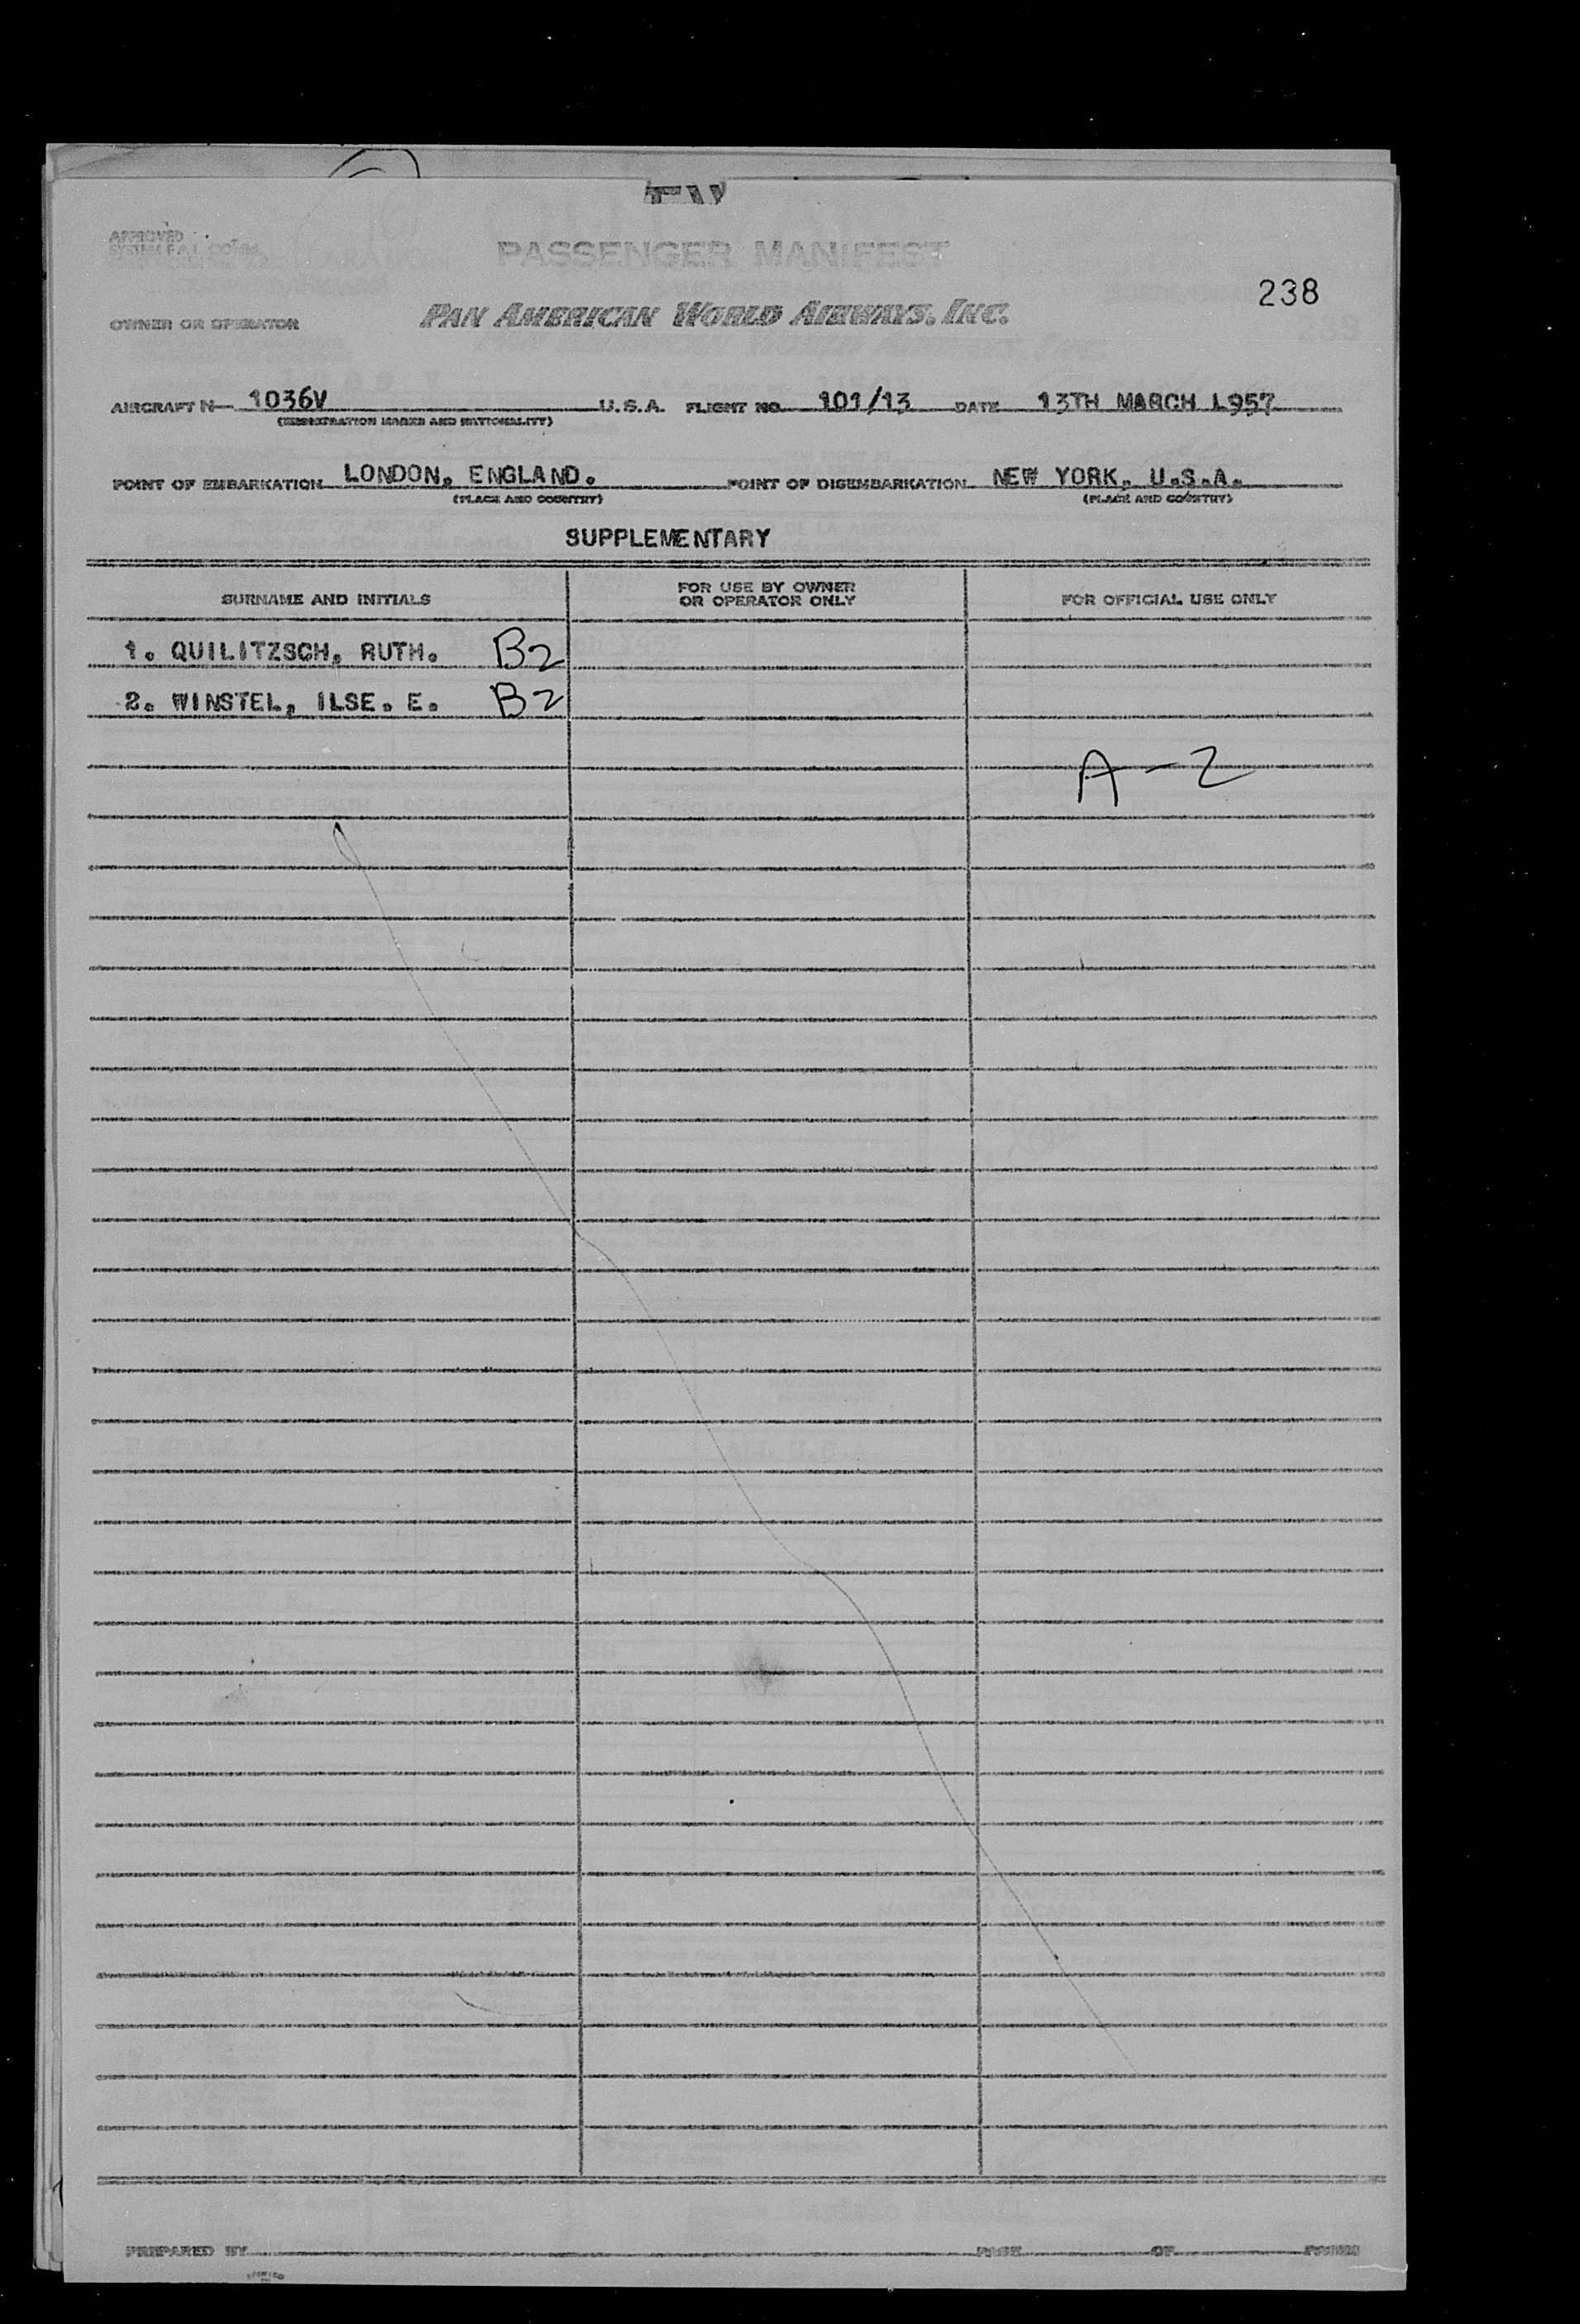 APPROVED
PASSENGER MANIFEST
238
OWNER OR OPERATOR PAN AMERICAN WORLD AIRWAYS, INC.
AIRCRAFT N- 1036V U.S.A. FLIGHT NO. 101/13 DATE 13TH MARCH 1957
(REGISTRATION MARKS AND NATIONALITY)
POINT OF EMBARKATION LONDON, ENGLAND. POINT OF DISEMBARKATION NEW YORK, U.S.A.
(PLACE AND COUNTRY) (PLACE AND COUNTRY)
SUPPLEMENTARY
SURNAME AND INITIALS FOR USE BY OWNER OR OPERATOR ONLY FOR OFFICIAL USE ONLY
1. QUILITZSCH, RUTH. B2
2. WINSTEL, ILSE. E. B2
A-2
PREPARED BY PAGE OF PAGES